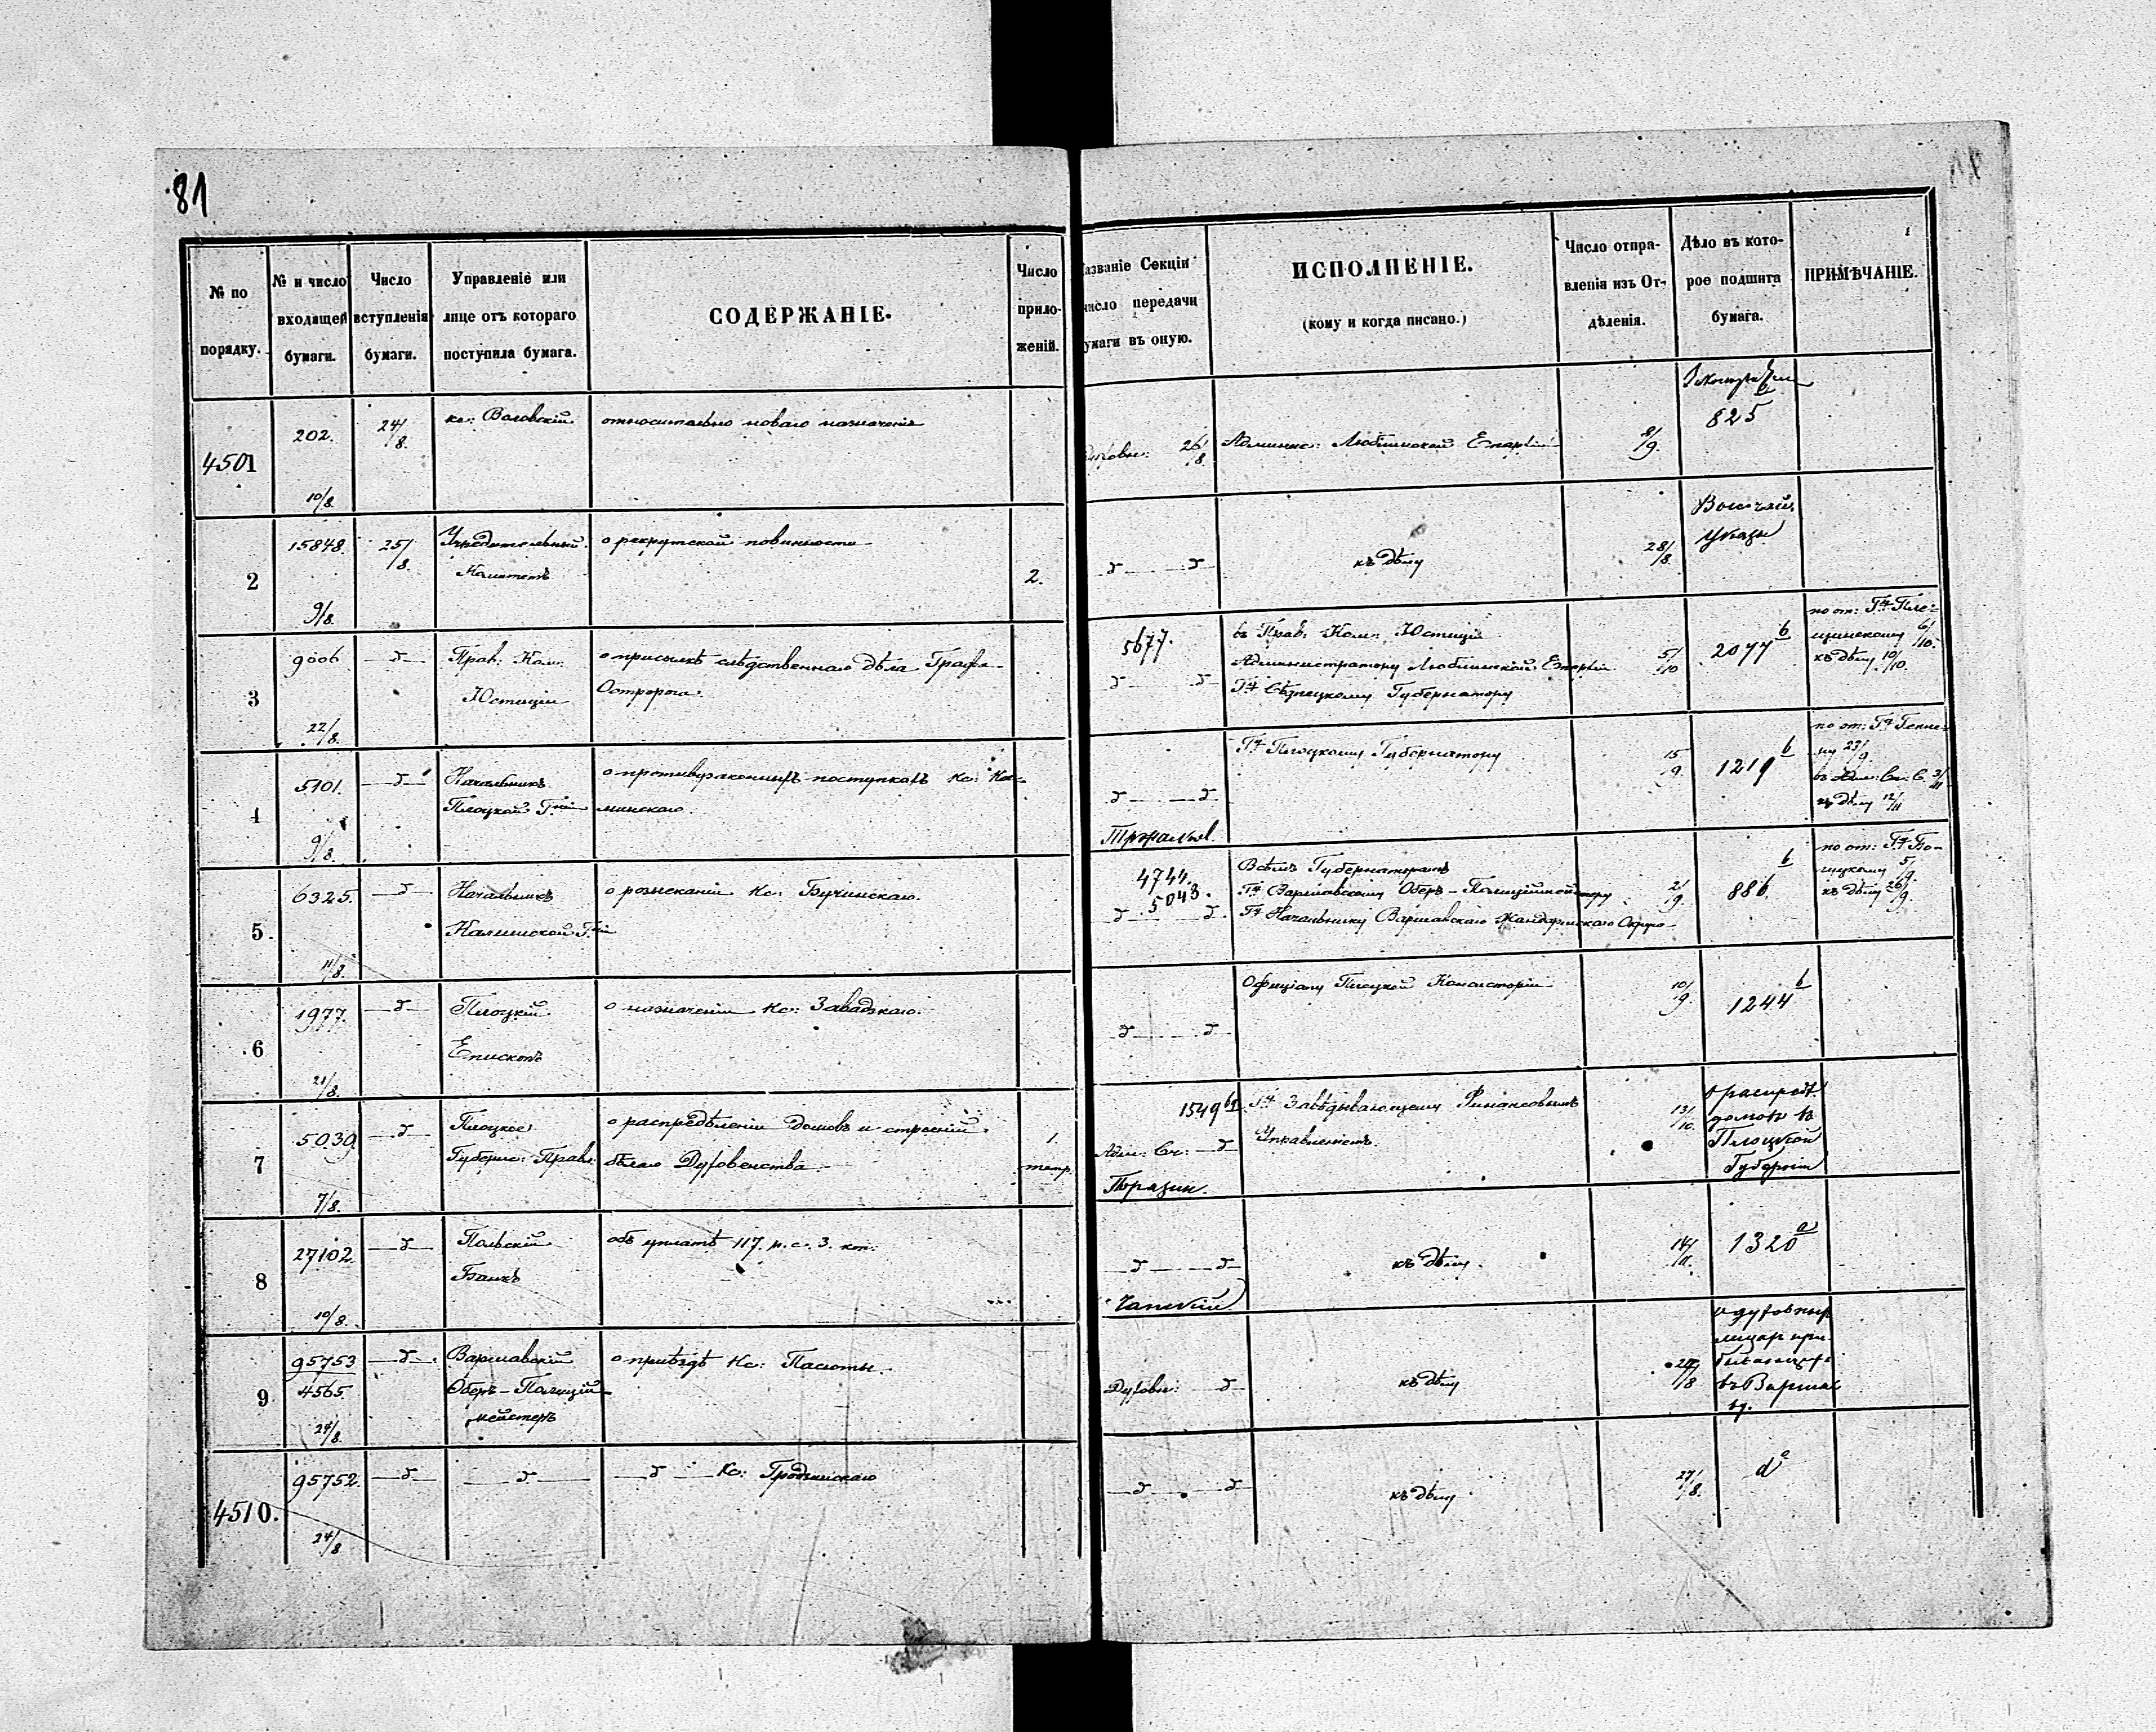 81
№ по порядку.
№ и число входящей бумаги.
Число вступленія бумаги.
Управленіе или лице отъ котораго поступила бумага.
СОДЕРЖАНІЕ.
Число приложеній.
азваніе Секціи число передачи бумаги въ оную.
ИСПОЛНЕНІЕ.
(кому и когда писано.)
Число отправленія изъ Отдѣленія.
Дѣло въ которое подшита бумага.
ПРИМѢЧАНІЕ.
4501
202.
10/8.
24/8.
кс: Воловскій
относительно новаго назначенія
26/8.
Админис: Люблинской Епархіи
9/9.
825
2
15848.
9/8.
25/8.
Учредительный
Комитетъ
о рекрутской повинности
2.
къ дѣлу
28/8.
Высочай.
Указы
3
9006
22/8.
Прав: Ком:
Юстиціи
о присылкѣ слѣдственнаго дѣла Графа
Остророга.
5677.
въ Прав. Ком: Юстиціи
Администратору Люблинской Епархіи
Губернатору
5/10
2077 b
по от:
6/10.
къ дѣлу 10/10.
4
5101.
9/8.
Начальникъ
Плоцкой Г.ніи
о противузаконныхъ поступкахъ Кс: Ка-
минскаго.
Г. Плоцкому Губернатору
15/9.
1219 b
по от:
23/9
къ дѣлу 12/11
5.
6325.
11/8.
Начальникъ
Калишской Г.ніи
о розысканіи Кс: Бучинскаго.
4744.
5043.
Всѣмъ Губернаторамъ
Г. Варшавскому Оберъ-Полиціймейстеру
Г. Начальнику Варшавскаго Жандармскаго Округа
2/9.
886.
b
по от:
5/9.
къ дѣлу 26/9.
6
1977.
21/8.
Плоцкій
Епископъ
о назначеніи Кс: Завадзкаго.
Офиціалу Плоцкой Консисторіи
10/9.
1244 b
7
5039
7/8.
Плоцкое
Губернс: Правл:
о распредѣленіи домовъ и строеній
бѣлаго Духовенства
1.
тетр.
1549
Адм: Сч:
Г. Завѣдывающему Финансовымъ
Управленіемъ.
13/10.
о распредѣ.
домовъ въ
Плоцкой
Губерніи
8
27102.
10/8.
Польскій
Банкъ
объ уплатѣ 117. р. с. 3. коп:
къ дѣлу.
14/11.
1320 a
9
95753
4565.
24/8.
Варшавскій
Оберъ-Полицій-
мейстеръ
о пріѣздѣ Кс: Пасюты.
Духовн:
къ дѣлу
27/8
о духовныхъ
лицахъ при-
бывающихъ
въ Варша-
ву.
4510.
95752.
24/8
Кс: Гродзинскаго
къ дѣлу
27/8.
dº